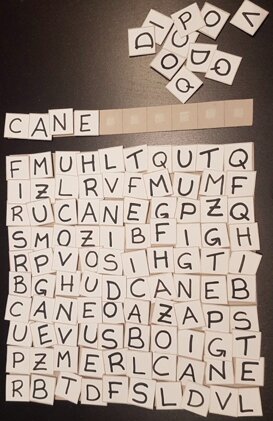 V
I P O
D C
O D Q
Q
CANE
FMUHLTQUTQ
IZLRVFMUMF
RUCANEGPZQ
SMOZIBFIGH
RPVOSIHGTI
BGHUDCANEB
CANEOAZAPS
UEVUSBOIGT
PZMERLCANE
RBTDFSLDVL